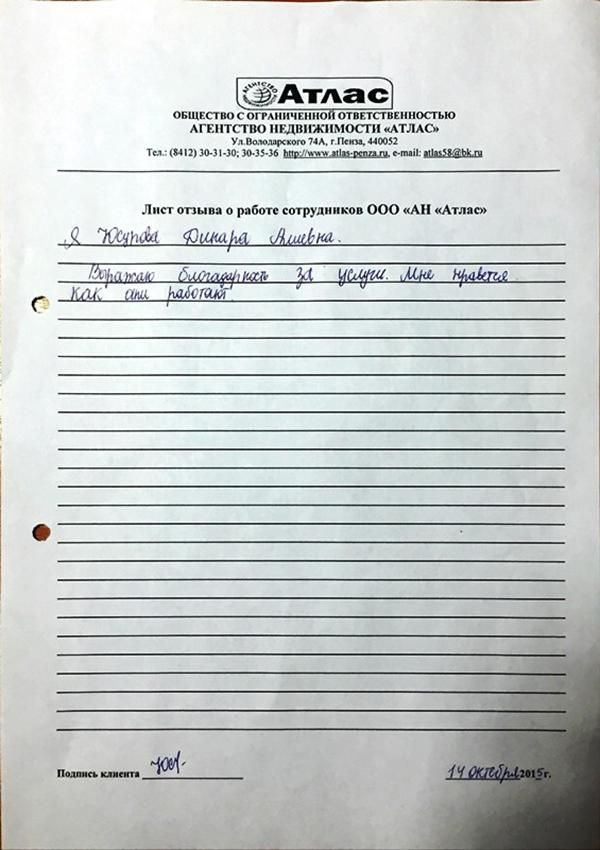 АГЕНТСТВО НЕДВИЖИМОСТИ
Атлас
ОБЩЕСТВО С ОГРАНИЧЕННОЙ ОТВЕТСТВЕННОСТЬЮ
АГЕНТСТВО НЕДВИЖИМОСТИ «АТЛАС»
Ул.Володарского 74А, г.Пенза, 440052
Тел.: (8412) 30-31-30; 30-35-36 http://www.atlas-penza.ru, e-mail: atlas58@bk.ru
Лист отзыва о работе сотрудников ООО «АН «Атлас»
Я Юсупова Динара Алиевна.
Воражаю благодарность за услуги. Мне нравется
как они работают
Подпись клиента
14 октября 2015г.